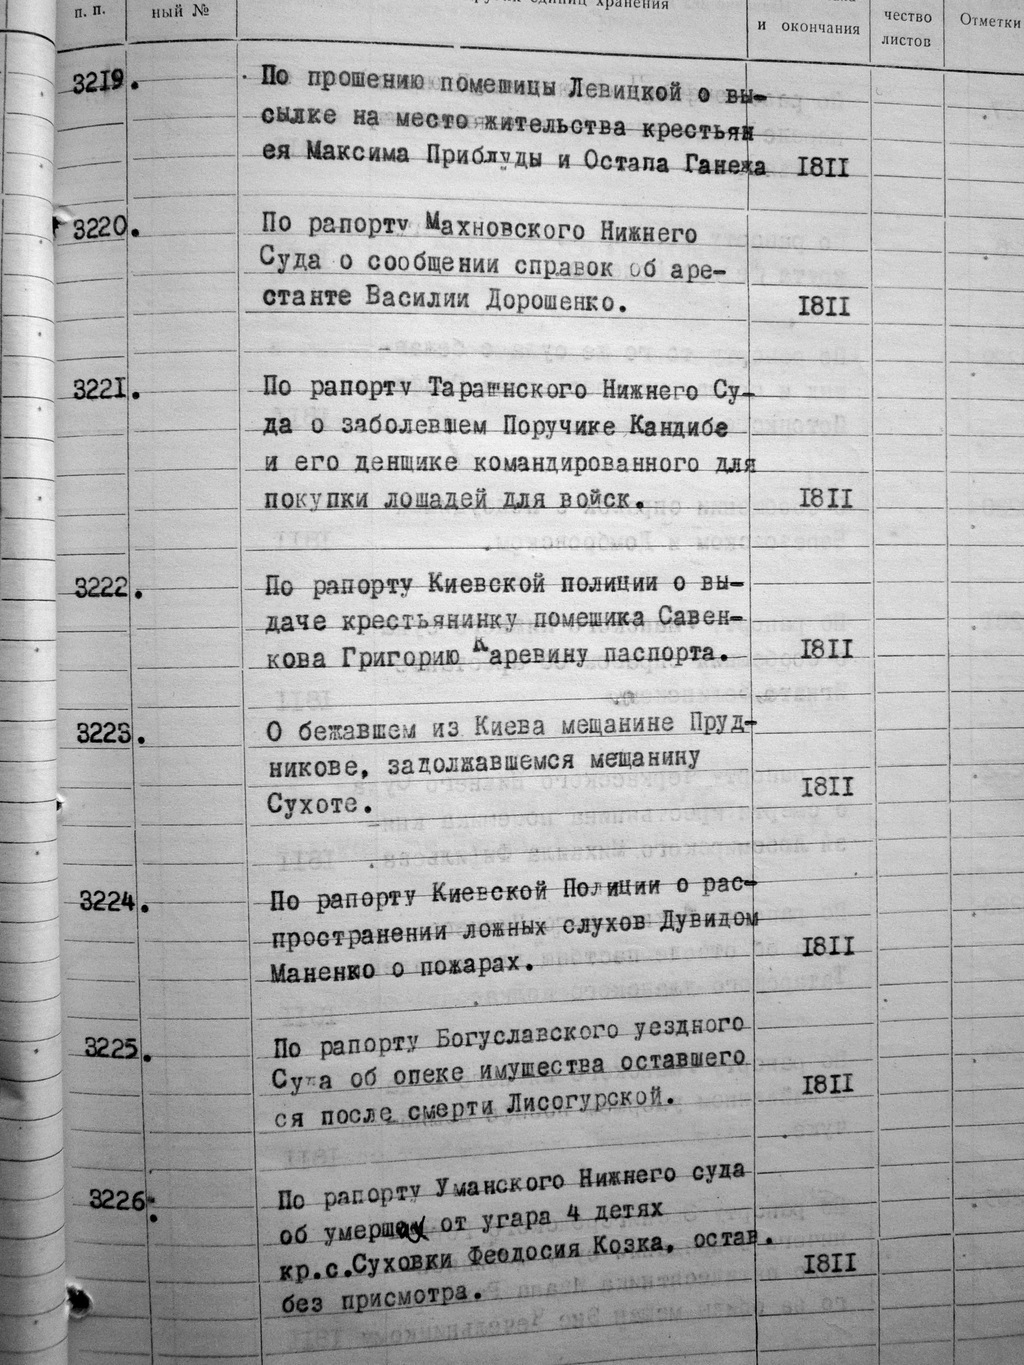 п. п.
ный №
единиц хранения
и окончания
чество
листов
Отметки
3219.
По прошению помещицы Левицкой о вы-
сылке на место жительства крестьян
ея Максима Приблуды и Остапа Ганежа 1811
3220.
По рапорту Махновского Нижнего
Суда о сообщении справок об аре-
станте Василии Дорошенко.
1811
3221.
По рапорту Таращнского Нижнего Су-
да о заболевшем Поручике Кандибе
и его денщике командированного для
покупки лошадей для войск.
1811
3222.
По рапорту Киевской полиции о вы-
даче крестьянинку помещика Савен-
кова Григорию Каревину паспорта.
1811
3223.
О бежавшем из Киева мещанине Пруд-
никове, задолжавшемся мещанину
Сухоте.
1811
3224.
По рапорту Киевской Полиции о рас-
пространении ложных слухов Дувидом
Маненко о пожарах.
1811
3225.
По рапорту Богуславского уездного
Суда об опеке имущества оставшего
ся после смерти Лисогурской.
1811
3226.
По рапорту Уманского Нижнего суда
об умерших от угара 4 детях
кр.с.Суховки Феодосия Козка, остав.
без присмотра.
1811